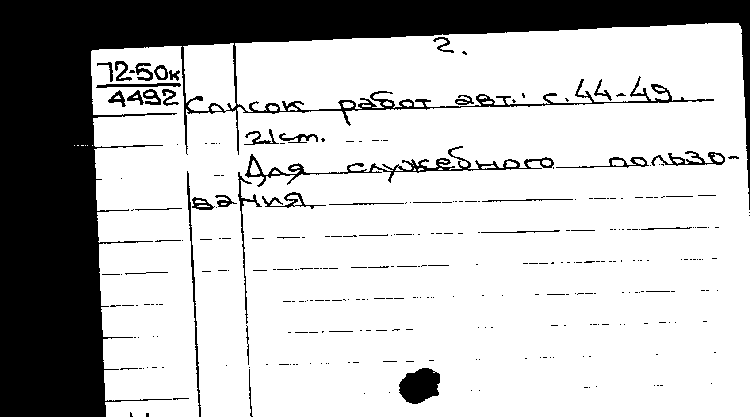 2.
72-50к
4492
Список работ авт.: с.44-49.
21ст.
Для служебного пользо-
вания.